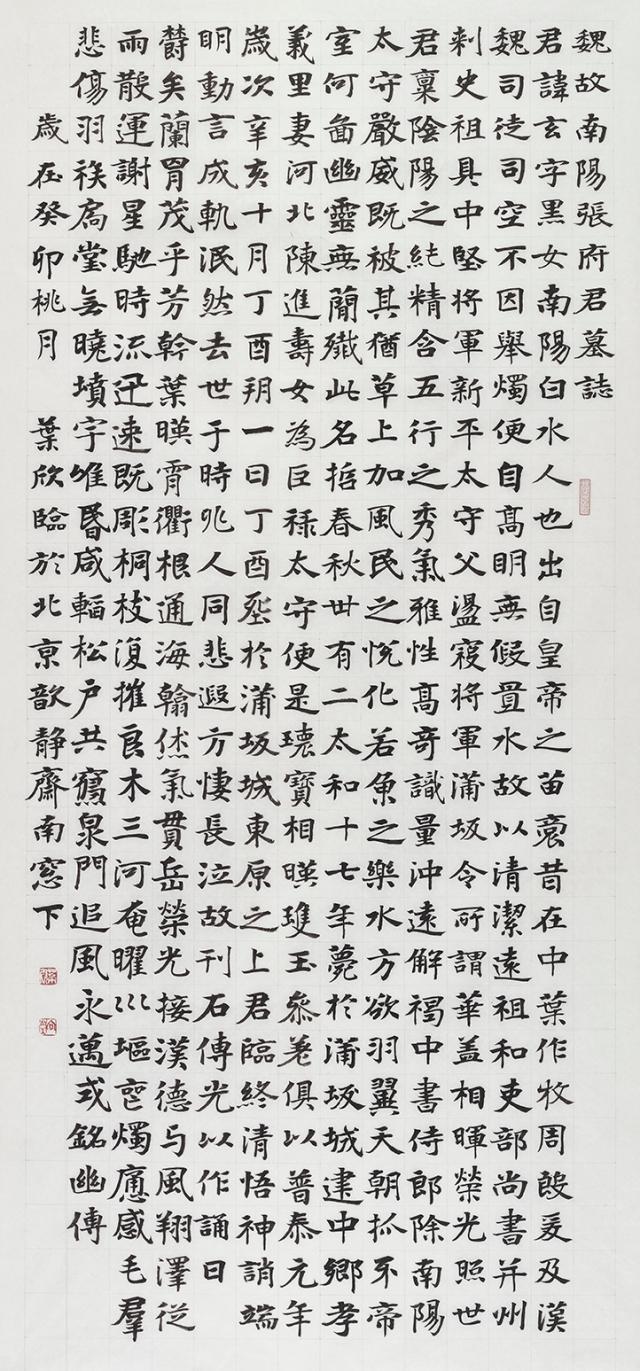 魏故南陽張府君墓誌
君諱玄字黑女南陽白水人也出自皇帝之苗裔昔在中葉作牧周殷爰及漢
魏司徒司空不因舉燭便自高明無假置水故以清潔遠祖和吏部尚書并州
刺史祖具中堅將軍新平太守父盪寇將軍蒲坂令所謂華蓋相暉榮光照世
君稟陰陽之純精含五行之秀氣雅性高奇識量沖遠解褐中書侍郎除南陽
太守嚴威既被其猶草上加風民之悅化若魚之樂水方欲羽翼天朝抓牙帝
室何啚幽靈無蕳殲此名哲春秋卅有二太和十七年薨於蒲坂城建中鄉孝
義里妻河北陳進壽女為巨祿太守便是瓌寶相暎瓊玉參差俱以普泰元年
歲次辛亥十月丁酉朔一日丁酉塟於蒲坂城東原之上君臨終清悟神誚端
明動言成軌泯然去世于時兆人同悲遐方悽長泣故刊石傳光以作誦曰
欝矣蘭胄茂乎芳幹葉暎霄衢根通海翰烋氣貫岳榮光接漢德与風翔澤從
雨散運謝星馳時流迅速既彫桐枝復摧良木三河奄曜川塸㐫燭應感毛羣
悲傷羽族扃堂無曉墳宇唯昏咸韜松戶共寢泉門追風永邁式銘幽傳
歲在癸卯桃月 葉欣臨於北京歆靜齋南窓下